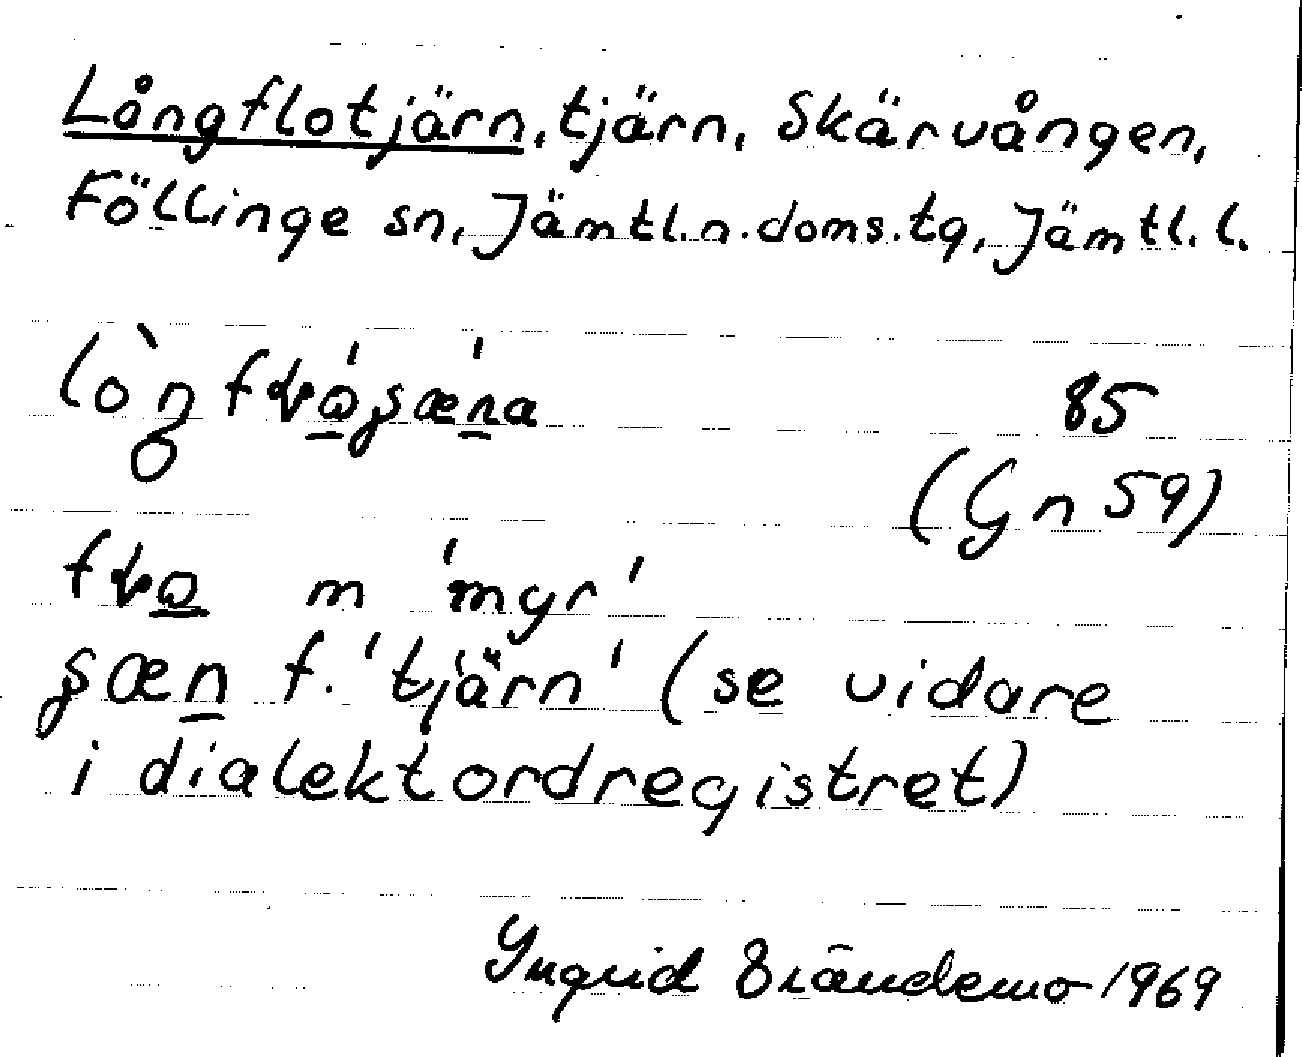 Långflotjärn, tjärn, Skärvången,
Föllinge sn, Jämtl.n.doms.tg, Jämtl. l.
85
(Gn 59)
m 'myr'
f. 'tjärn' (se vidare
i dialektordregistret)
Ingrid Brändemo 1969